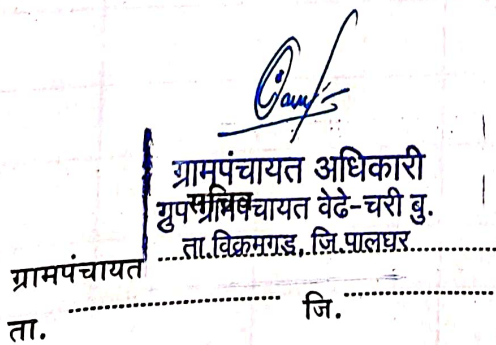 ग्रामपंचायत अधिकारी
सचिव
ग्रुप ग्रामपंचायत वेढे-चरी बु.
ता.विक्रमगड, जि.पालघर
ग्रामपंचायत
ता. जि.